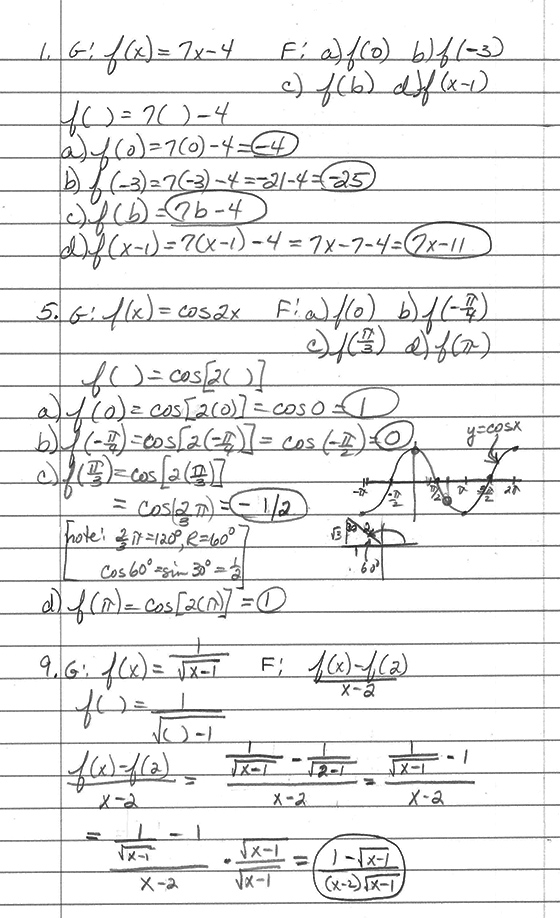 1. G: f(x) = 7x-4 F: a) f(0) b) f(-3)
c) f(b) d) f(x-1)
f( ) = 7( ) - 4
a) f(0) = 7(0) - 4 = -4
b) f(-3) = 7(-3) - 4 = -21 - 4 = -25
c) f(b) = 7b - 4
d) f(x-1) = 7(x-1) - 4 = 7x - 7 - 4 = 7x - 11
5. G: f(x) = cos2x F: a) f(0) b) f(-π/4)
c) f(π/3) d) f(π)
f( ) = cos[2( )]
a) f(0) = cos[2(0)] = cos0 = 1
y=cosx
b) f(-π/4) = cos[2(-π/4)] = cos(-π/2) = 0
c) f(π/3) = cos[2(π/3)]
-π -π/2 π/2 π 3π/2 2π
= cos(2/3 π) = -1/2
[note: 2/3 π = 120°, R = 60°
√3 2
1 60°
cos60° = sin 30° = 1/2]
d) f(π) = cos[2(π)] = 1
9. G: f(x) = 1/√(x-1) F: (f(x) - f(2))/(x-2)
f( ) = 1/√(( ) - 1)
(f(x) - f(2))/(x-2) = (1/√(x-1) - 1/√(2-1))/(x-2) = (1/√(x-1) - 1)/(x-2)
= (1/√(x-1) - 1)/(x-2) · √(x-1)/√(x-1) = (1 - √(x-1))/((x-2)√(x-1))